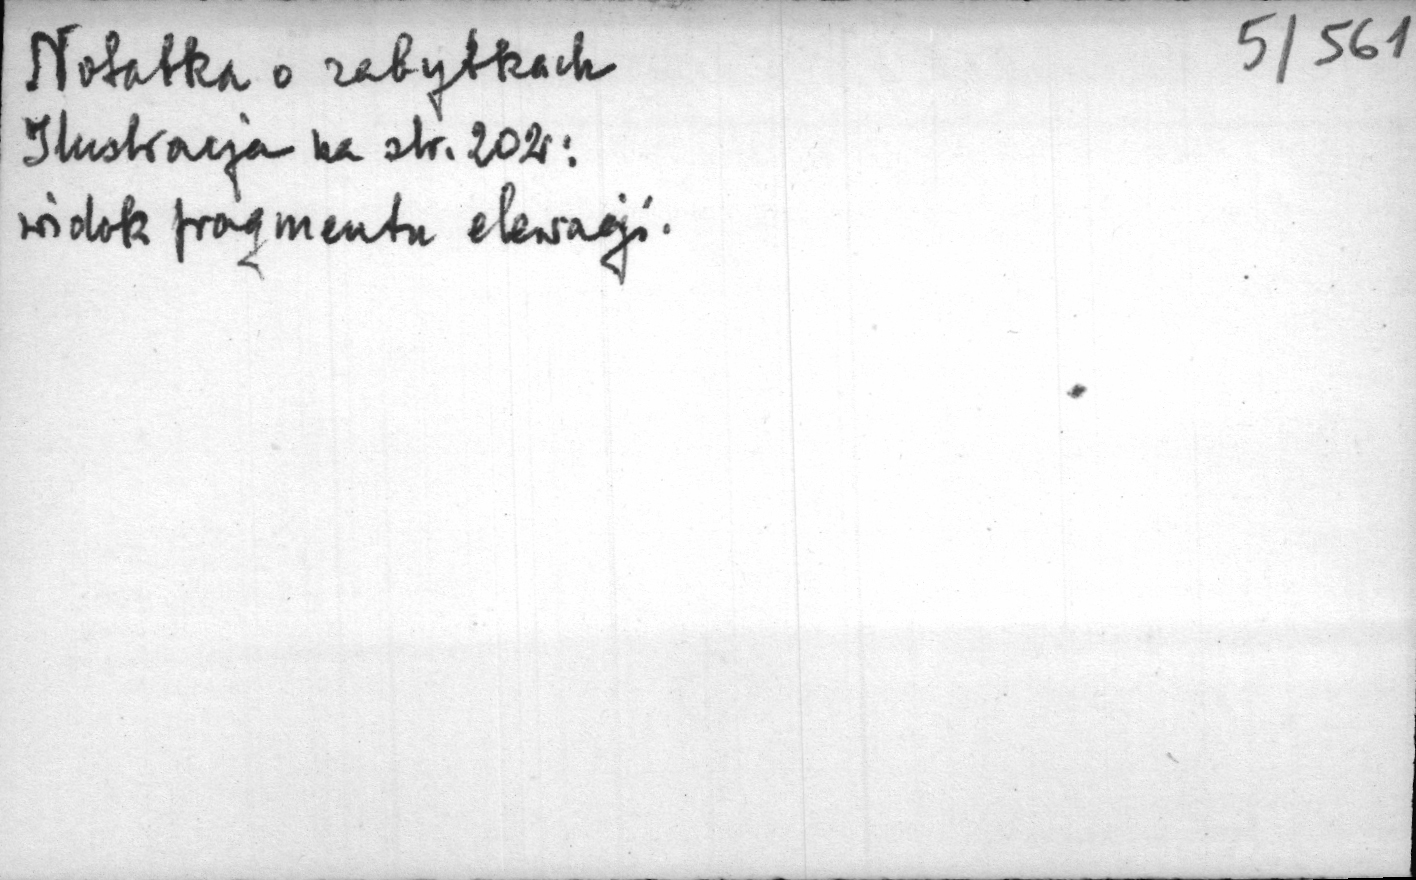 5/561
Notatka o zabytkach
Ilustracja na str. 202:
widok fragmentu elewacji.